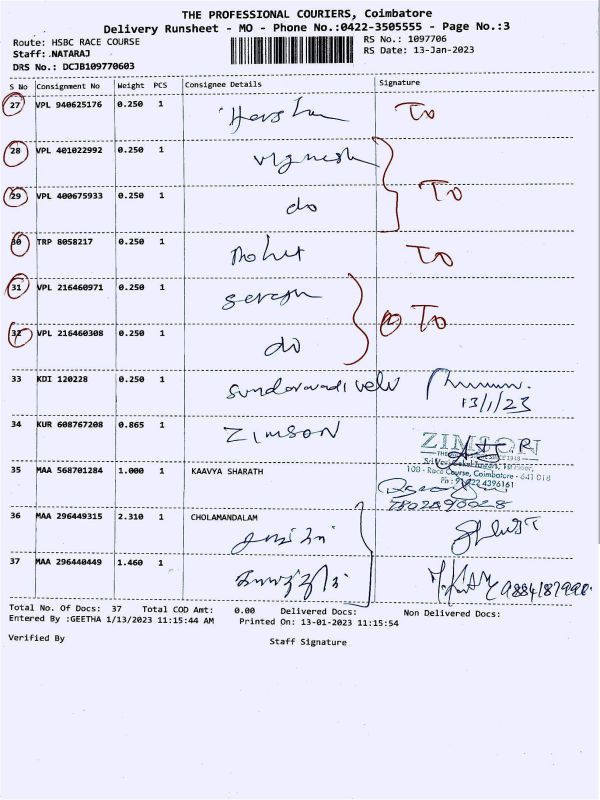 THE PROFESSIONAL COURIERS, Coimbatore
Delivery Runsheet - MO - Phone No.:0422-3505555 - Page No.:3
Route: HSBC RACE COURSE
RS No.: 1097706
Staff:.NATARAJ
RS Date: 13-Jan-2023
DRS No.: DCJB109770603
S No Consignment No Weight PCS Consignee Details Signature
27 VPL 940625176 0.250 1 To
28 VPL 401022992 0.250 1 Vignesh
29 VPL 400675933 0.250 1 do To
30 TRP 8058217 0.250 1 Rohit To
31 VPL 216460971 0.250 1 To
32 VPL 216460308 0.250 1 do
33 KDI 120228 0.250 1 Sundaravadivelu 13/1/23
34 KUR 608767208 0.865 1 ZIMSON
ZIMSON
108 - Race Course, Coimbatore - 641 018
35 MAA 568701284 1.000 1 KAAVYA SHARATH
36 MAA 296449315 2.310 1 CHOLAMANDALAM
37 MAA 296440449 1.460 1
Total No. Of Docs: 37 Total COD Amt: 0.00 Delivered Docs: Non Delivered Docs:
Entered By :GEETHA 1/13/2023 11:15:44 AM Printed On: 13-01-2023 11:15:54
Verified By Staff Signature